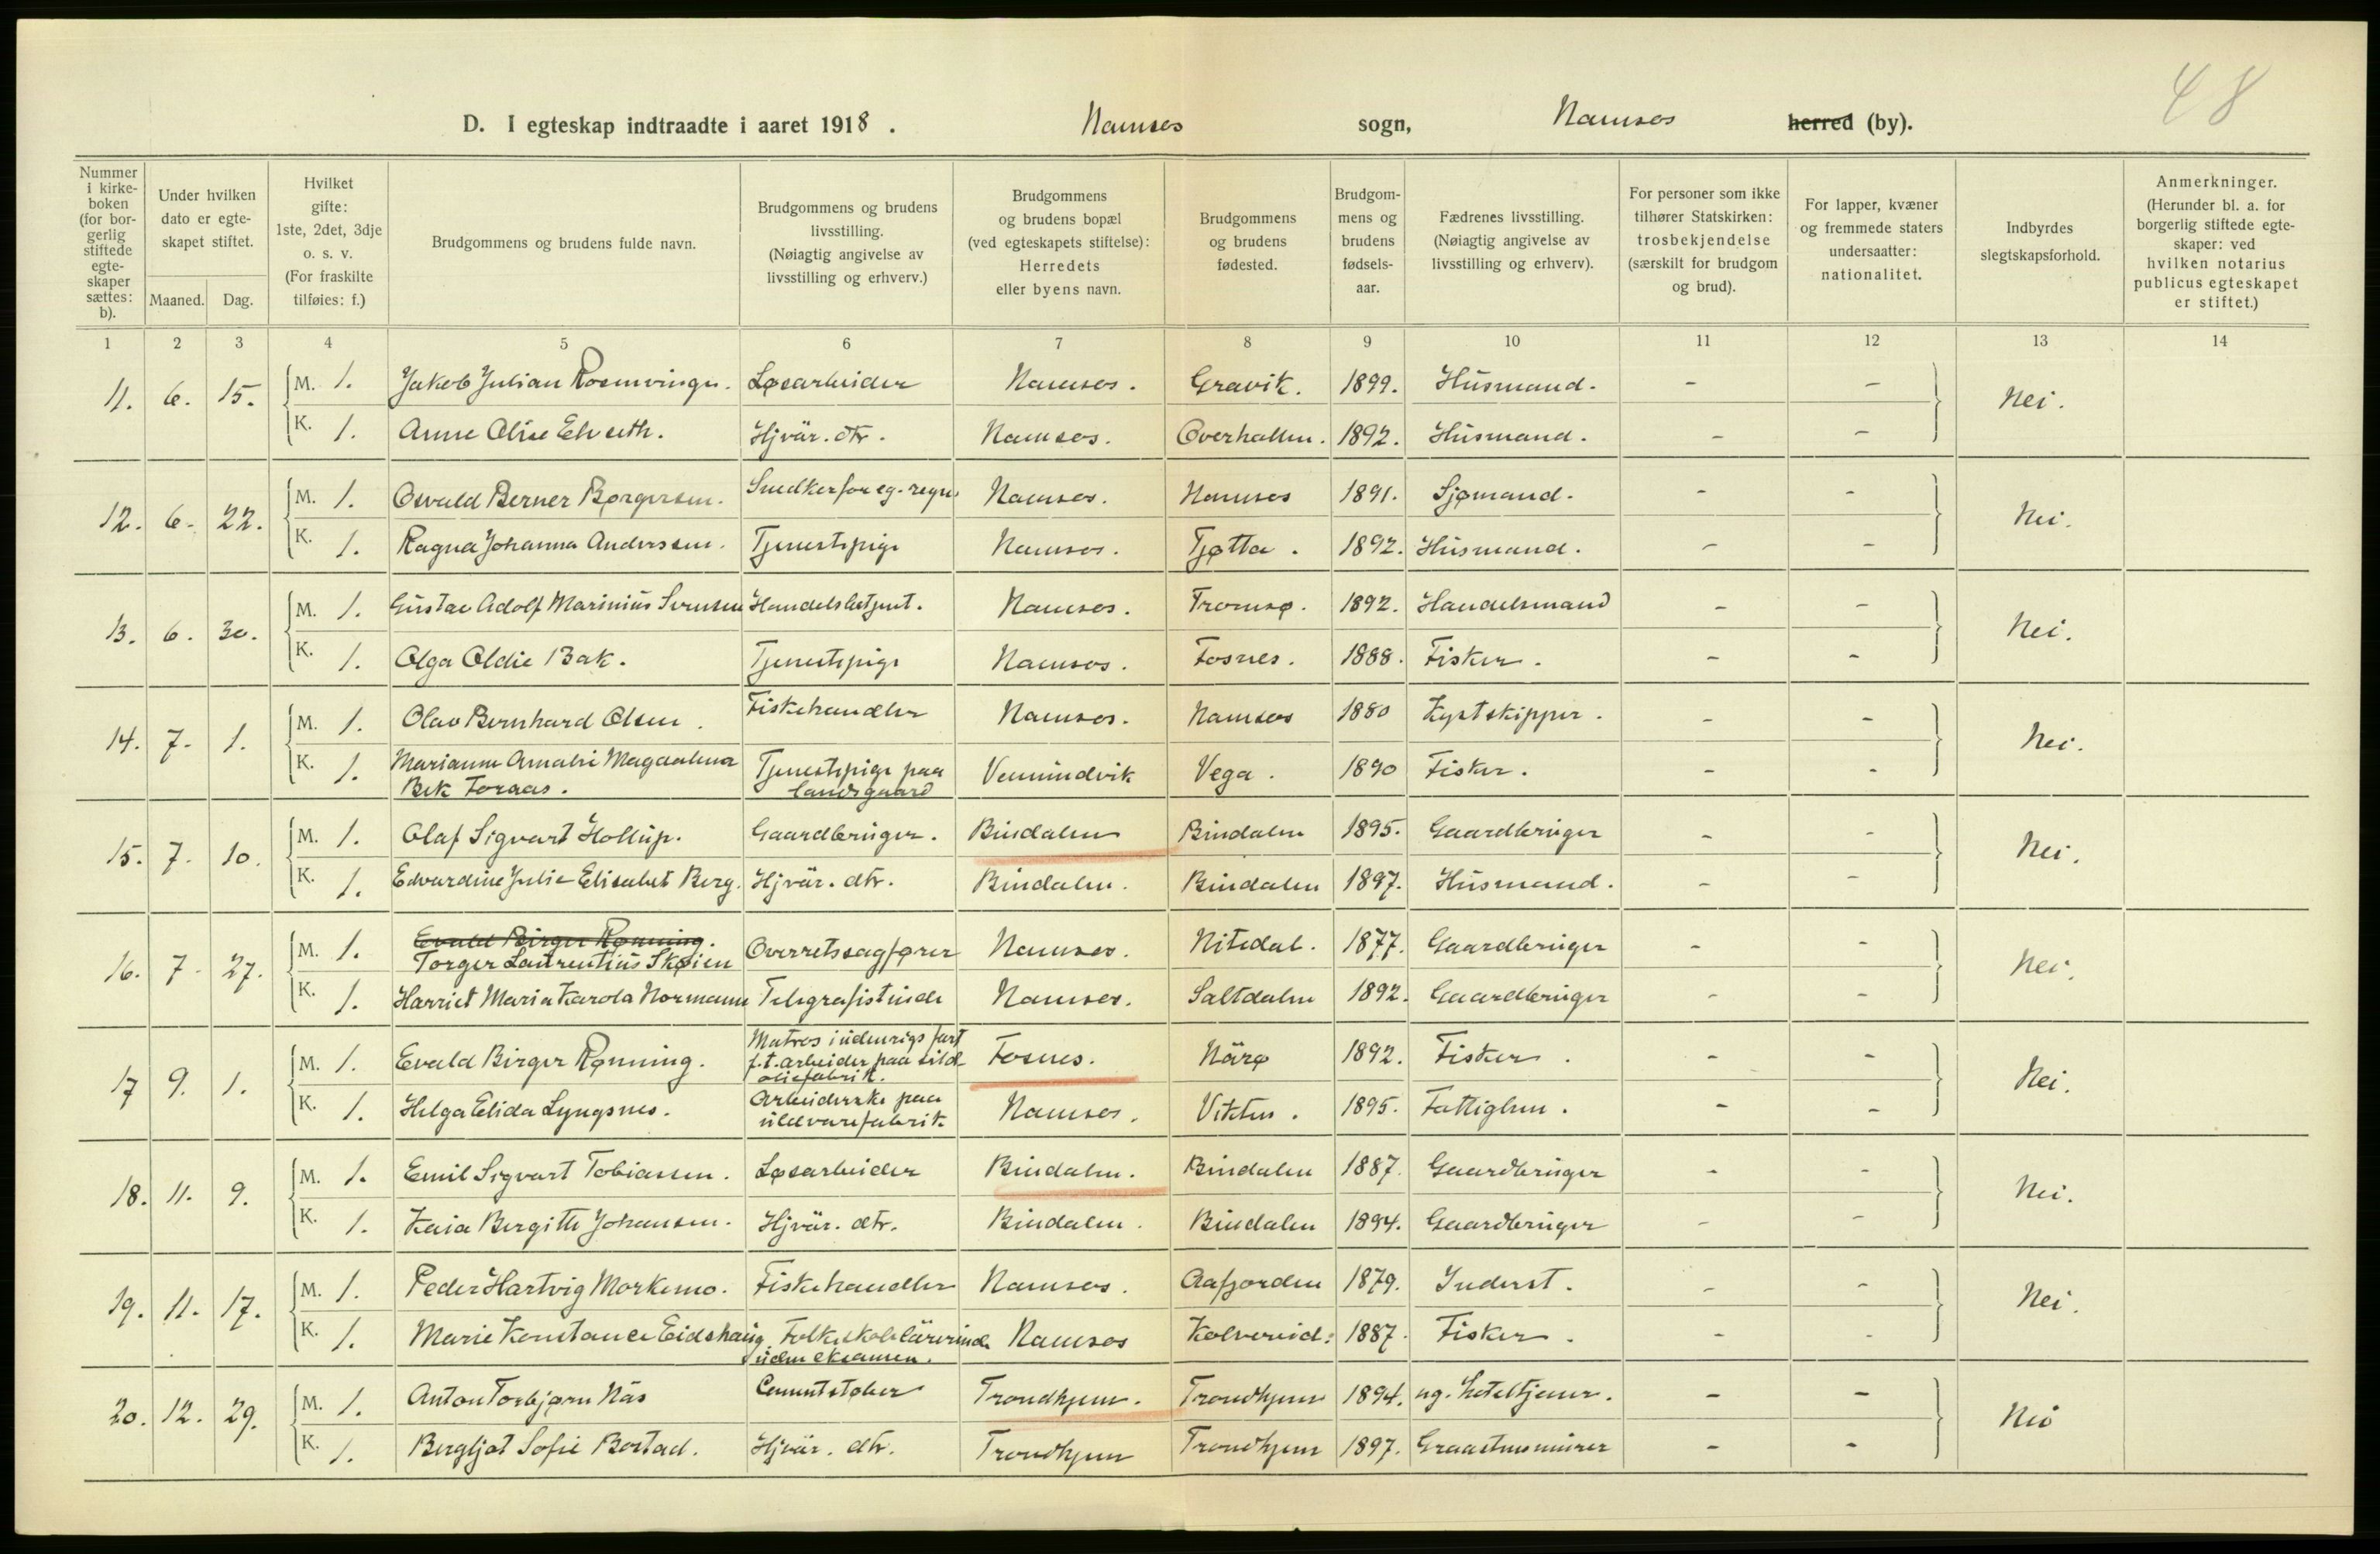 48
D. I egteskap indtraadte i aaret 1918. Namsos sogn, Namsos herred (by).
Nummer i kirkeboken (for borgerlig stiftede egteskaper sættes: b).
Under hvilken dato er egteskapet stiftet.
Maaned. Dag.
Hvilket gifte: 1ste, 2det, 3dje o. s. v. (For fraskilte tilføies: f.)
Brudgommens og brudens fulde navn.
Brudgommens og brudens livsstilling. (Nøiagtig angivelse av livsstilling og erhverv.)
Brudgommens og brudens bopæl (ved egteskapets stiftelse): Herredets eller byens navn.
Brudgommens og brudens fødested.
Brudgommens og brudens fødselsaar.
Fædrenes livsstilling. (Nøiagtig angivelse av livsstilling og erhverv).
For personer som ikke tilhører Statskirken: trosbekjendelse (særskilt for brudgom og brud).
For lapper, kvæner og fremmede staters undersaatter: nationalitet.
Indbyrdes slegtskapsforhold.
Anmerkninger. (Herunder bl. a. for borgerlig stiftede egteskaper: ved hvilken notarius publicus egteskapet er stiftet.)
1 2 3 4 5 6 7 8 9 10 11 12 13 14
11. 6. 15. M. 1. Jakob Julian Rosenvinge. Løsarbeider Namsos. Gravik. 1899. Husmand. - - Nei.
K. 1. Anne Elvseth. Hjvär. dtr. Namsos. Overhallen. 1892. Husmand. - -
12. 6. 22. M. 1. Osvald Berner Børgersen. Snedker for eg. regn. Namsos. Namsos 1891. Sjømand. - - Nei.
K. 1. Ragna Johanna Anderssen. Tjenestepige Namsos. Tjøtta. 1892. Husmand. - -
13. 6. 30. M. 1. Gustav Adolf Marinius Svensen Handelsbetjent. Namsos. Tromsø. 1892. Handelsmand - - Nei.
K. 1. Olga Oldie Bak. Tjenestepige Namsos. Fosnes. 1888. Fisker. - -
14. 7. 1. M. 1. Olav Bernhard Olsen. Fiskehandler Namsos. Namsos 1880 Kystskipper. - - Nei.
K. 1. Marianne Amalie Magdalena Bek Foraas. Tjenestepige paa landsgaard Vemundvik Vega. 1890 Fisker. - -
15. 7. 10. M. 1. Olaf Sigvart Hollup. Gaardbruger. Bindalen Bindalen 1895. Gaardbruger - - Nei.
K. 1. Edvardine Julie Elisabet Berg. Hjvär. dtr. Bindalen. Bindalen 1897. Husmand. - -
16. 7. 27. M. 1. Evald Birger Rønning.
Torger Laurentius Skøien Overretssagfører Namsos. Nitedal. 1877. Gaardbruger - - Nei.
K. 1. Harriet Maria Karola Normann Telegrafistinde Namsos. Saltdalen 1892. Gaardbruger - -
17 9. 1. M. 1. Evald Birger Rønning. Matros i udenrigs fart f.t. arbeider paa sildoliefabrik. Fosnes. Närø 1892. Fisker. - - Nei.
K. 1. Helga Elida Lyngsnes. Arbeiderske paa uldvarefabrik Namsos. Vikten. 1895. Fattiglem. - -
18. 11. 9. M. 1. Emil Sigvart Tobiassen. Løsarbeider Bindalen. Bindalen 1887. Gaardbruger - - Nei.
K. 1. Kaia Bergitte Johansen. Hjvär. dtr. Bindalen. Bindalen 1894. Gaardbruger - -
19. 11. 17. M. 1. Peder Hartvig Morkemo. Fiskehandler Namsos. Aafjorden 1879. Inderst. - - Nei.
K. 1. Marie Konstance Eidshaug Folkeskolelärerinde uden eksamen. Namsos Kolvereid: 1887. Fisker. - -
20. 12. 29. M. 1. Anton Torbjørn Näs Cementstøber Trondhjem. Trondhjem 1894. ug. hoteltjener. - - Nei
K. 1. Bergljot Sofie Borstad. Hjvär. dtr. Trondhjem Trondhjem 1897. Graastensmurer - -